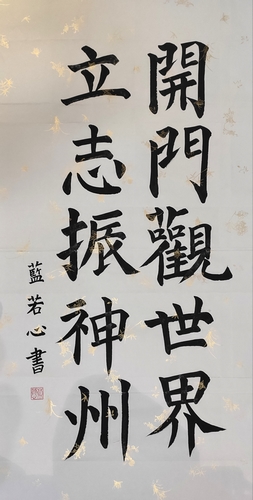 開門觀世界
立志振神州
藍若心書